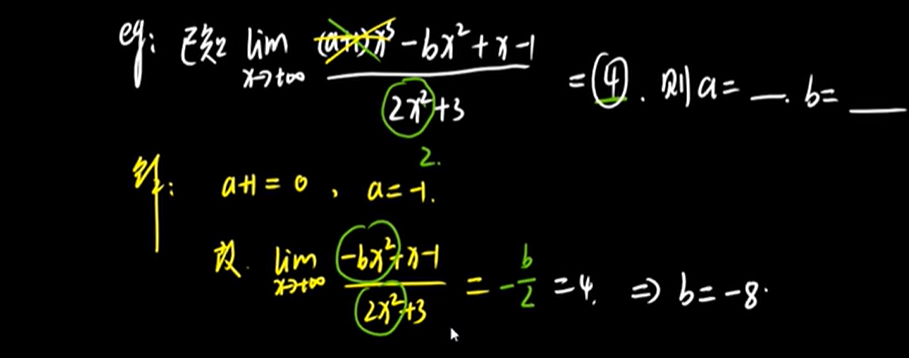 eg: 已知 lim x→+∞ ((a+1)x³ - bx² + x - 1)/(2x² + 3) = 4. 则 a = __. b = __
2.
解: a+1 = 0, a = -1.
故. lim x→+∞ (-bx² + x - 1)/(2x² + 3) = -b/2 = 4. ⇒ b = -8.